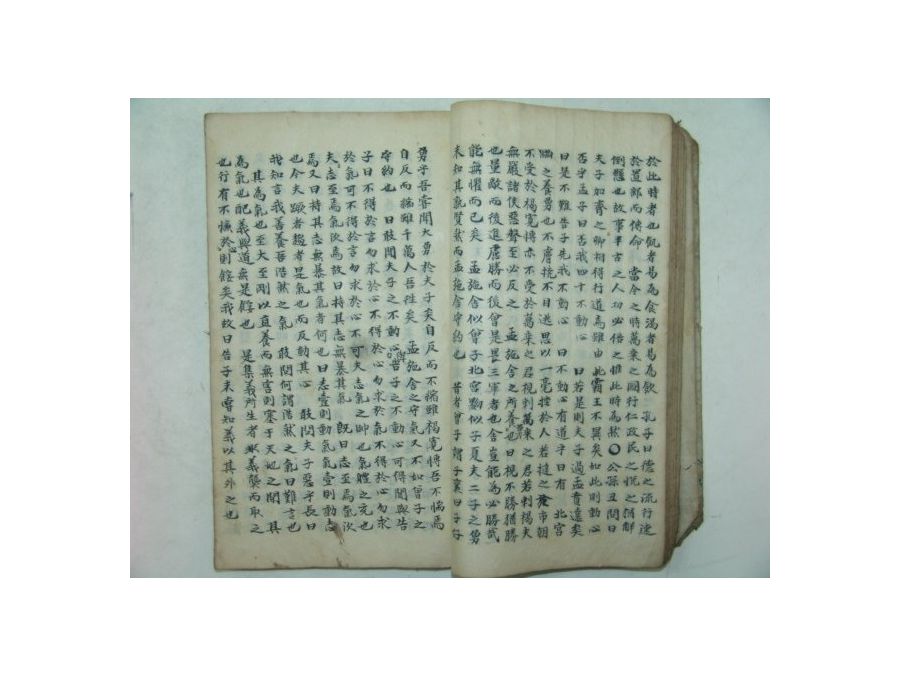 於此時者也飢者易為食渴者易為飲 孔子曰德之流行速
於置郵而傳命 當今之時萬乘之國行仁政民之悅之猶解
倒懸也故事半古之人功必倍之惟此時為然○公孫丑問曰
夫子加齊之卿相得行道焉雖由此霸王不異矣如此則動心
否乎孟子曰否我四十不動心 曰若是則夫子過孟賁遠矣
曰是不難告子先我不動心 曰不動心有道乎曰有 北宮
黝之養勇也不膚撓不目逃思以一毫挫於人若撻之於市朝
不受於褐寬博亦不受於萬乘之君視刺萬乘之君若刺褐夫
無嚴諸侯惡聲至必反之 孟施舍之所養勇也曰視不勝猶勝
也量敵而後進慮勝而後會是畏三軍者也舍豈能為必勝哉
能無懼而已矣 孟施舍似曾子北宮黝似子夏夫二子之勇
未知其孰賢然而孟施舍守約也 昔者曾子謂子襄曰子好
勇乎吾嘗聞大勇於夫子矣自反而不縮雖褐寬博吾不惴焉
自反而縮雖千萬人吾往矣 孟施舍之守氣又不如曾子之
守約也 曰敢問夫子之不動心與告子之不動心可得聞與告
子曰不得於言勿求於心不得於心勿求於氣不得於心勿求
於氣可不得於言勿求於心不可夫志氣之帥也氣體之充也
夫志至焉氣次焉故曰持其志無暴其氣 既曰志至焉氣次
焉又曰持其志無暴其氣者何也曰志壹則動氣氣壹則動志
也今夫蹶者趨者是氣也而反動其心 敢問夫子惡乎長曰
我知言我善養吾浩然之氣 敢問何謂浩然之氣曰難言也
其為氣也至大至剛以直養而無害則塞于天地之間 其
為氣也配義與道無是餒也 是集義所生者非義襲而取之
也行有不慊於心則餒矣我故曰告子未嘗知義以其外之也